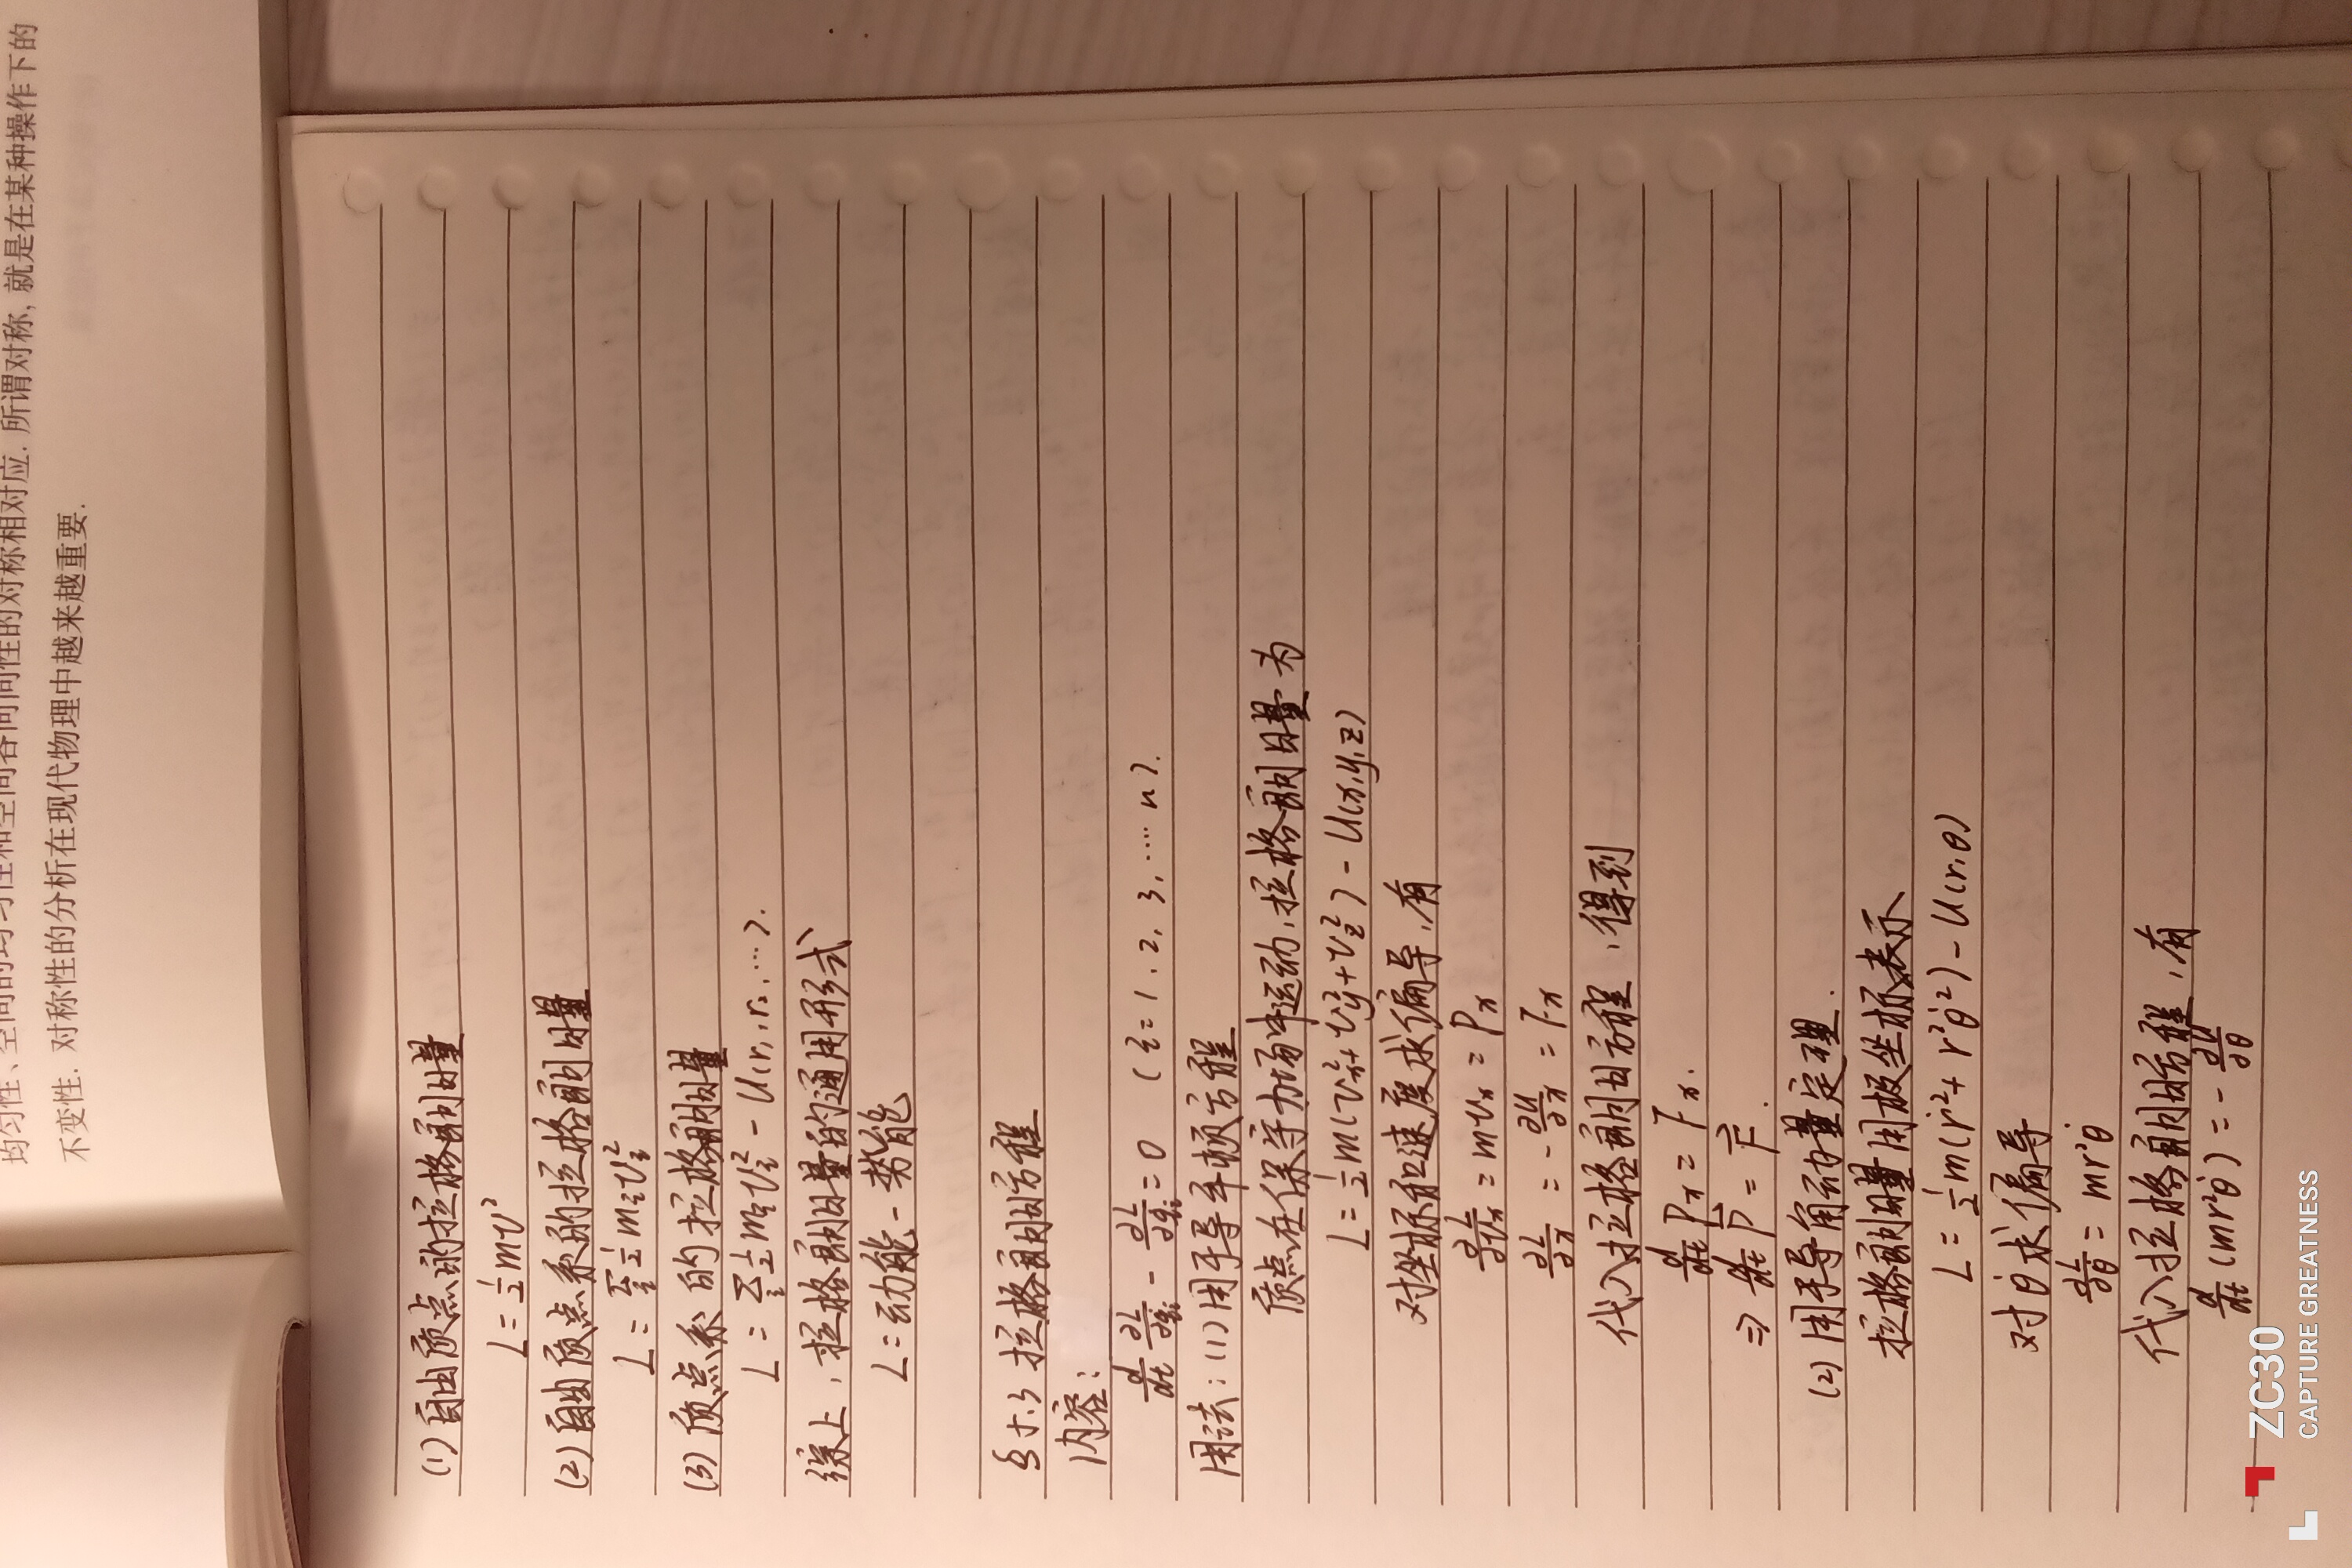 均匀性、空间的均匀性和空间各向同性的对称相对应. 所谓对称, 就是在某种操作下的
不变性. 对称性的分析在现代物理中越来越重要.
(1) 自由质点的拉格朗日量
L = ½mv²
(2) 自由质点系的拉格朗日量
L = Σᵢ ½mᵢvᵢ²
(3) 质点系的拉格朗日量
L = Σᵢ ½mᵢvᵢ² - U(r₁, r₂, …).
综上, 拉格朗日量的通用形式
L = 动能 - 势能
§ 十.3 拉格朗日方程
内容:
d/dt ∂L/∂q̇ᵢ - ∂L/∂qᵢ = 0 (i = 1, 2, 3, … n).
用法: (1) 用于导牛顿方程
质点在保守力场中运动, 拉格朗日量为
L = ½m(vₓ² + v_y² + v_z²) - U(x, y, z)
对坐标和速度求偏导, 有
∂L/∂vₓ = mvₓ = Pₓ
∂L/∂x = - ∂U/∂x = Fₓ
代入拉格朗日方程, 得到
d/dt Pₓ = Fₓ.
⇒ d/dt P⃗ = F⃗.
(2) 用于导角动量定理.
拉格朗日量用极坐标表示
L = ½m(ṙ² + r²θ̇²) - U(r, θ)
对θ̇求偏导
∂L/∂θ̇ = mr²θ̇
代入拉格朗日方程, 有
d/dt (mr²θ̇) = - ∂U/∂θ
ZC30
CAPTURE GREATNESS